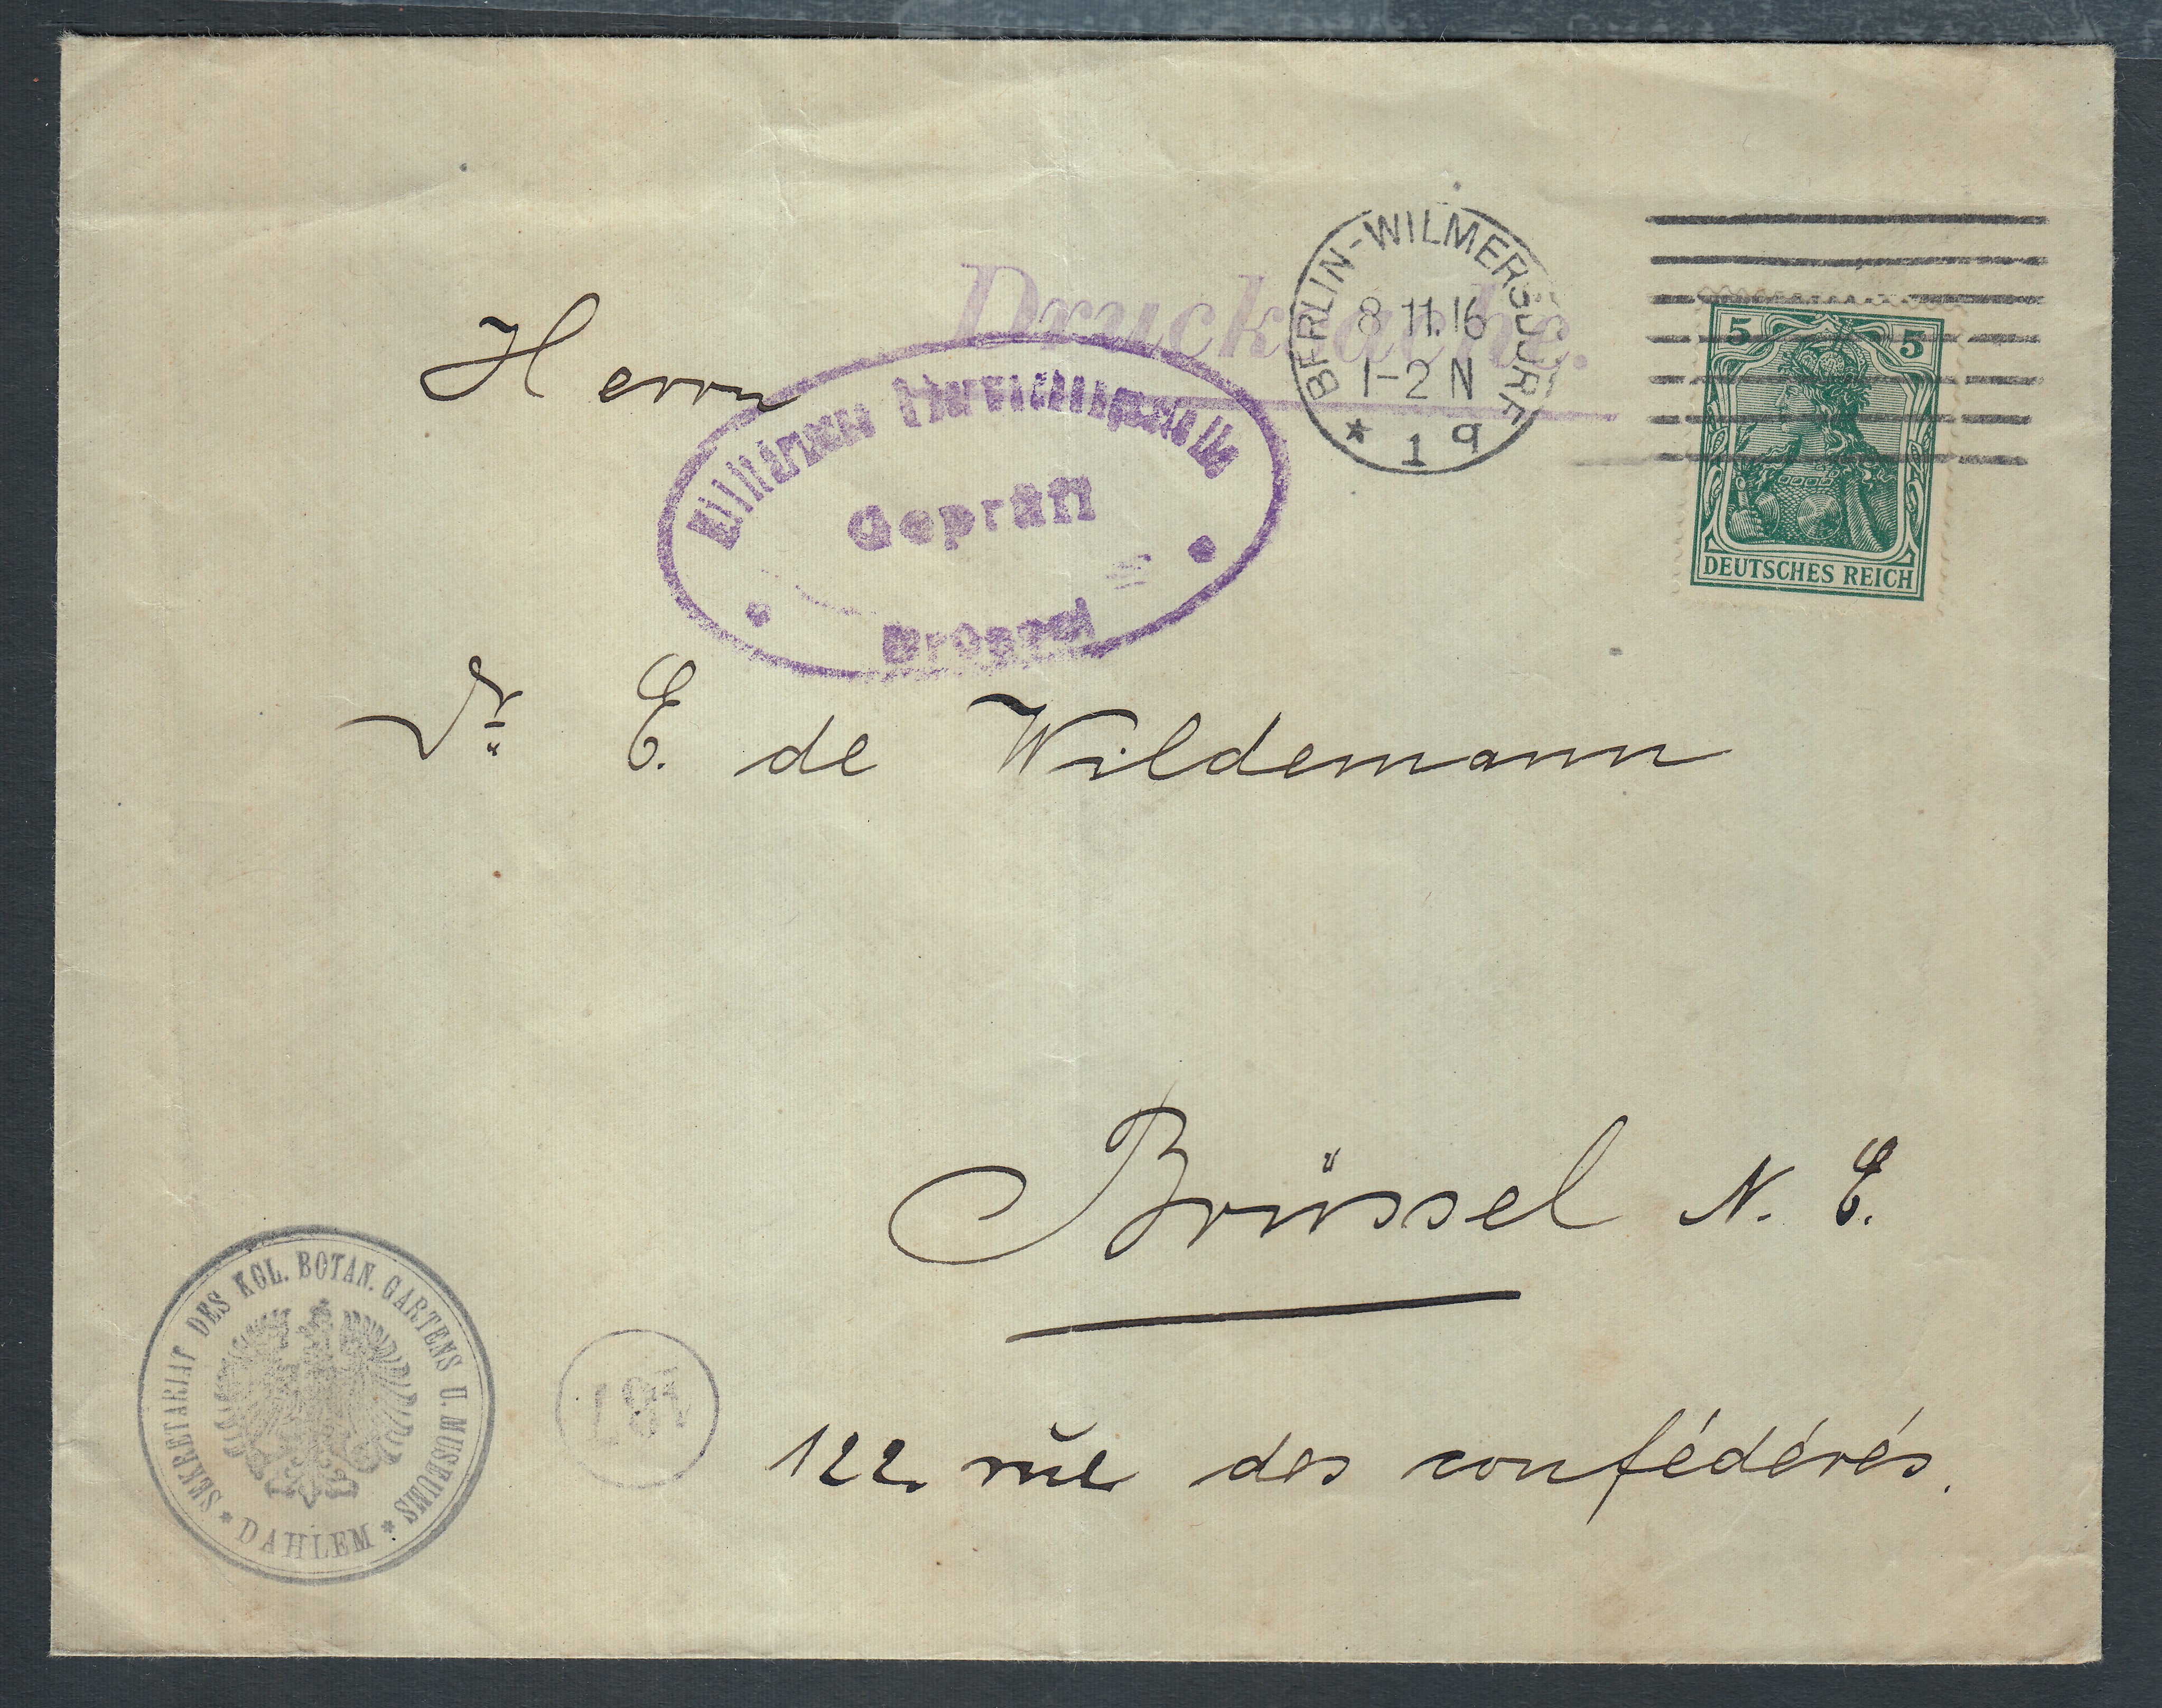 Drucksache.
BERLIN-WILMERSDORF
8.11.16
1-2 N
* 1 q
5 5
DEUTSCHES REICH
Herrn
Geprüft
Brüssel
Dr. E. de Wildemann
Brüssel N. E.
122 rŭe des confédérés.
SEKRETARIAT DES KGL. BOTAN. GARTENS U. MUSEUMS
* DAHLEM *